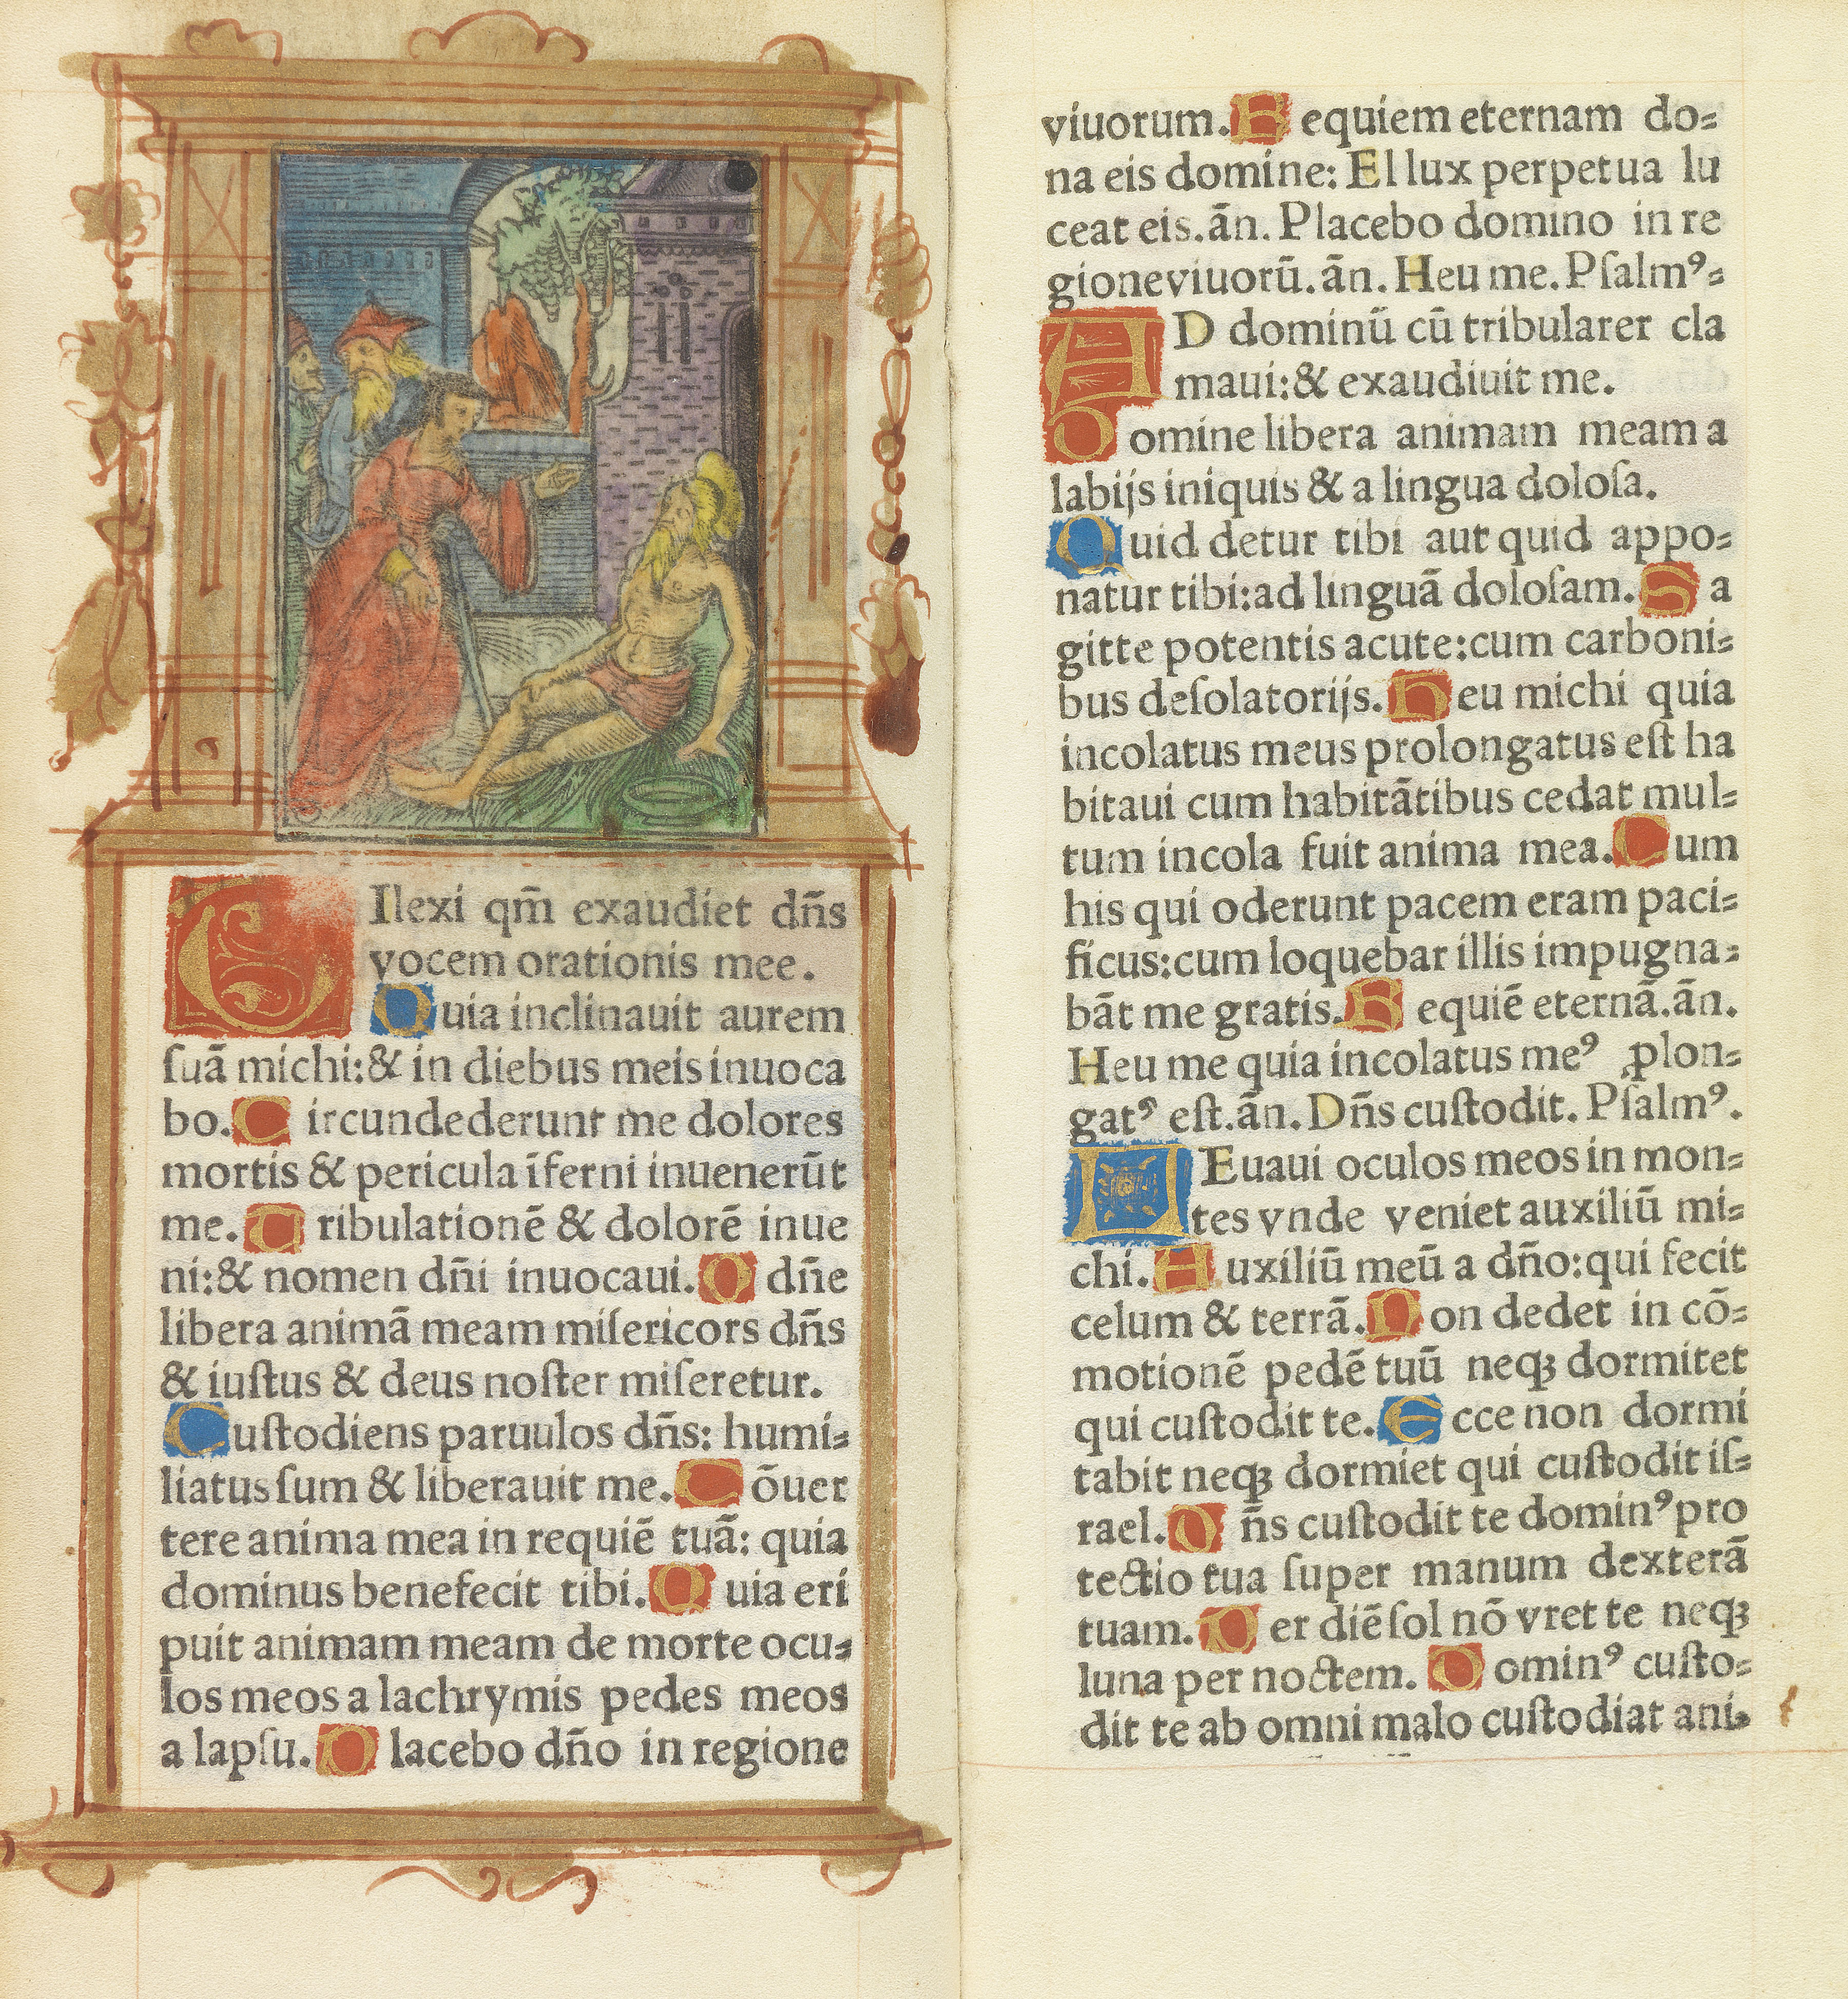 DIlexi qm̄ exaudiet dn̄s
vocem orationis mee.
Quia inclinauit aurem
ſuā michi:& in diebus meis inuoca
bo. Circundederunt me dolores
mortis & pericula īferni inuenerūt
me. Tribulationē & dolorē inue
ni:& nomen dn̄i inuocaui. O dn̄e
libera animā meam miſericors dn̄s
& iuſtus & deus noſter miſeretur.
Cuſtodiens paruulos dn̄s: humi⸗
liatus ſum & liberauit me. Cōuer
tere anima mea in requiē tuā: quia
dominus benefecit tibi. Quia eri
puit animam meam de morte ocu⸗
los meos a lachrymis pedes meos
a lapſu. Placebo dn̄o in regione
viuorum. Requiem eternam do⸗
na eis domine: El lux perpetua lu
ceat eis. ān. Placebo domino in re
gione viuorū. ān. Heu me. Pſalmꝰ⸗
AD dominū cū tribularer cla
maui:& exaudiuit me.
Domine libera animam meam a
labijs iniquis & a lingua doloſa.
Quid detur tibi aut quid appo⸗
natur tibi:ad linguā doloſam. Sa
gitte potentis acute:cum carboni⸗
bus deſolatorijs. Heu michi quia
incolatus meus prolongatus eſt ha
bitaui cum habitātibus cedat mul⸗
tum incola fuit anima mea. Cum
his qui oderunt pacem eram paci⸗
ficus:cum loquebar illis impugna⸗
bāt me gratis. Requiē eternā. ān.
Heu me quia incolatus meꝰ ꝓlon⸗
gatꝰ eſt. ān. Dn̄s cuſtodit. Pſalmꝰ.
LEuaui oculos meos in mon⸗
tes vnde veniet auxiliū mi⸗
chi. Auxiliū meū a dn̄o:qui fecit
celum & terrā. Non dedet in cō⸗
motionē pedē tuū neqꝫ dormitet
qui cuſtodit te. Ecce non dormi
tabit neqꝫ dormiet qui cuſtodit iſ⸗
rael. Dn̄s cuſtodit te dominꝰ pro
tectio tua ſuper manum dexterā
tuam. Per diē ſol nō vret te neqꝫ
luna per noctem. Dominꝰ cuſto⸗
dit te ab omni malo cuſtodiat ani⸗